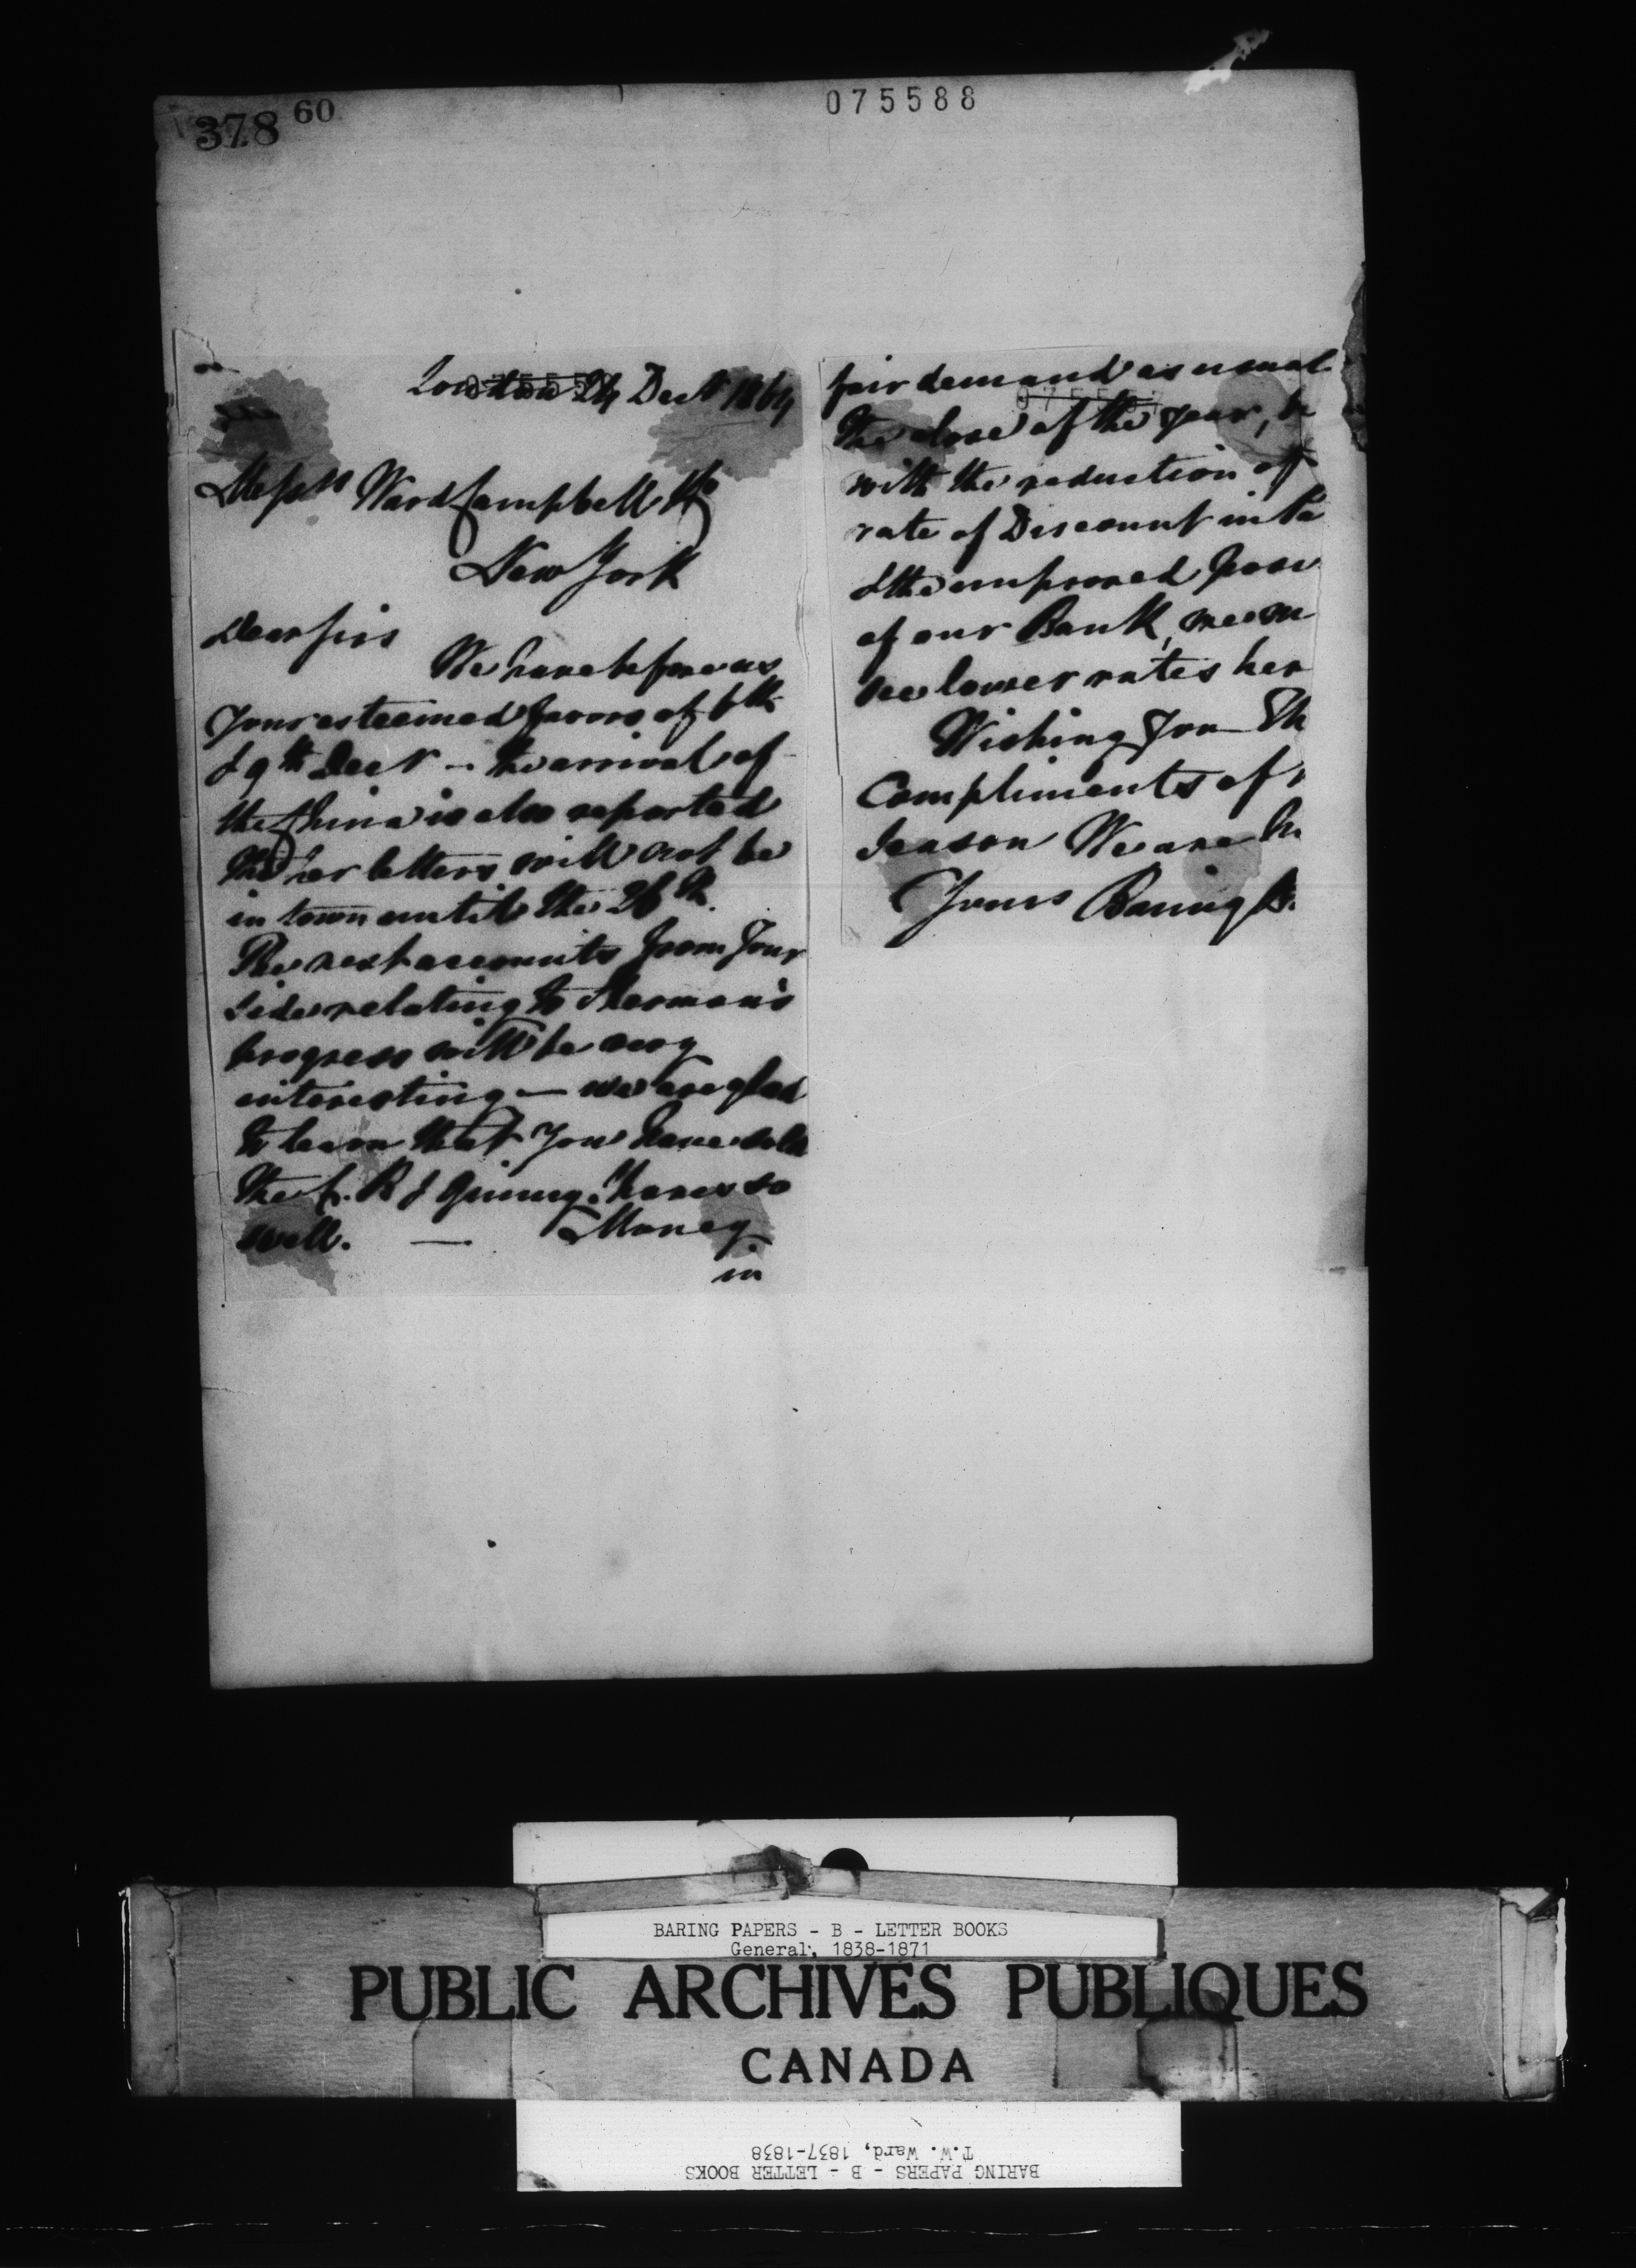 378 60
075588
London 24 Decr 1864
Messrs Ward Campbell & Co
New York
Dear Sirs
We have before us
Your esteemed favors of 6th
& 9th Decr - the arrival of
the China is also reported
tho her letters will not be
in town until the 26th.
The next accounts from Your
side relating to Sherman's
progress will be very
interesting — we are glad
to learn that You have sold
the C. R & Quincy Shares so
well. — Money
in
fair demand as usual
the close of the year, &
with the reduction of
rate of Discount in Pa
& the improved posi
of our Bank, we m
see lower rates her
Wishing You Th
Compliments of
Season We are
Yours Baring B.
BARING PAPERS - B - LETTER BOOKS
General, 1838-1871
PUBLIC ARCHIVES PUBLIQUES
CANADA
T.W. Ward, 1837-1838
BARING PAPERS - B - LETTER BOOKS